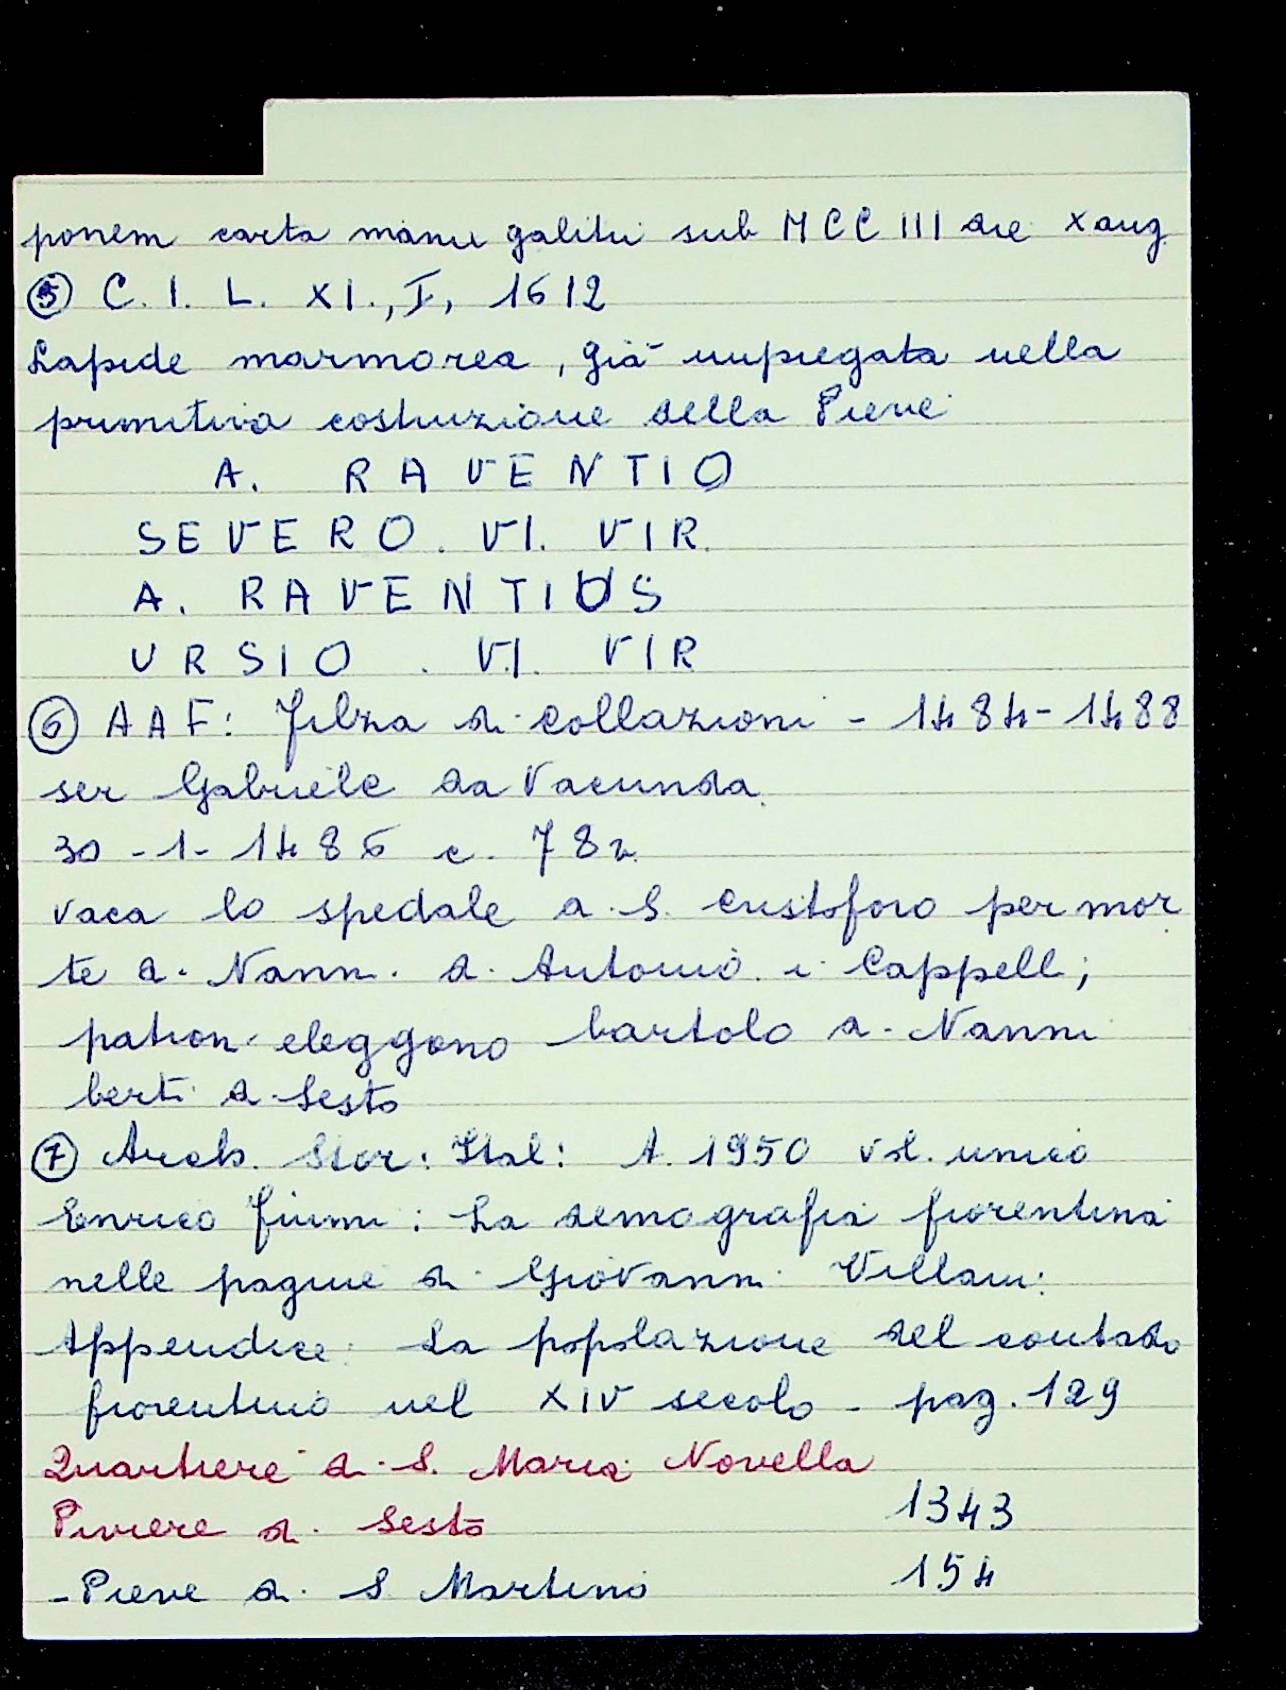 ponem carta manu galitii sub MCC III die X aug.
⑤ C. I. L. XI., I, 1612
Lapide marmorea, già impiegata nella
primitiva costruzione della Pieve
A. RAVENTIO
SEVERO. VI. VIR.
A. RAVENTIUS
URSIO . VI. VIR
⑥ AAF: Filza di collazioni - 1484-1488
ser Gabriele da Vacunda
30-1-1486 c. 78r.
vaca lo spedale di S. Cristoforo per mor
te di Nanni di Antonio Cappelli;
patroni eleggono bartolo di Nanni
berti di Sesto
⑦ Arch. Stor: Ital: A. 1950 vol. unico
Enrico Fiumi: La demografia fiorentina
nelle pagine di Giovanni Villani:
Appendice: La popolazione del contado
fiorentino nel XIV secolo - pag. 129
Quartiere di S. Maria Novella
Piviere di Sesto 1343
-Pieve di S. Martino 154